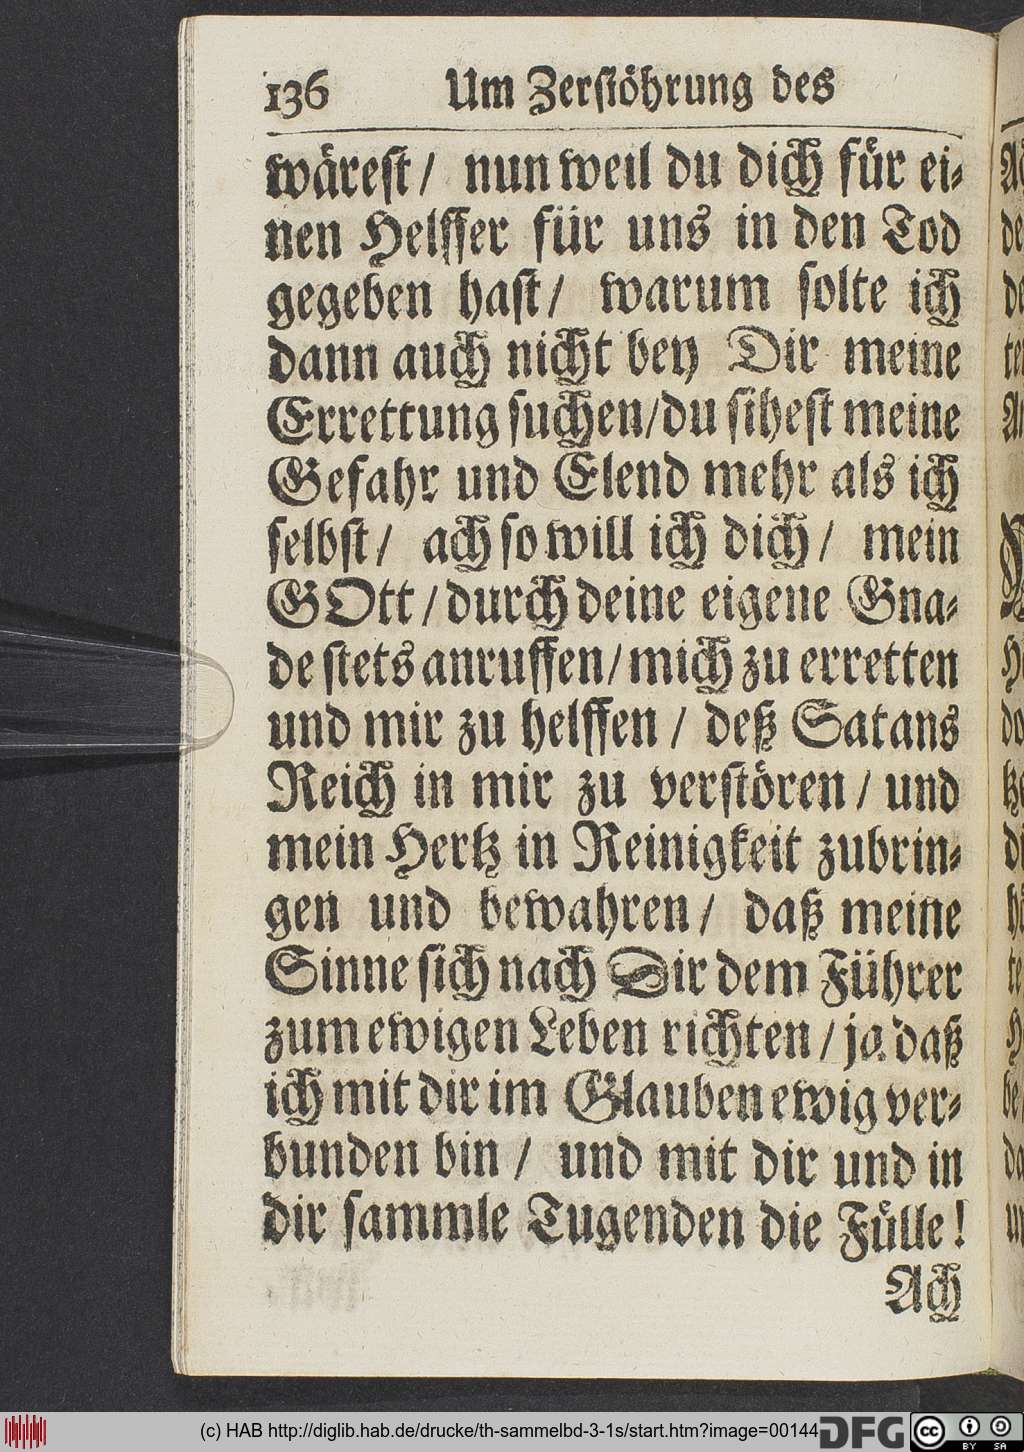 136 Um Zerſtöhrung des
wäreſt / nun weil du dich für ei⸗
nen Helffer für uns in den Tod
gegeben haſt / warum ſolte ich
dann auch nicht bey Dir meine
Errettung ſuchen / du ſiheſt meine
Gefahr und Elend mehr als ich
ſelbſt / ach ſo will ich dich / mein
GOtt / durch deine eigene Gna⸗
de ſtets anruffen / mich zu erretten
und mir zu helffen / deß Satans
Reich in mir zu verſtören / und
mein Hertz in Reinigkeit zubrin⸗
gen und bewahren / daß meine
Sinne ſich nach Dir dem Führer
zum ewigen Leben richten / ja daß
ich mit dir im Glauben ewig ver⸗
bunden bin / und mit dir und in
dir ſammle Tugenden die Fülle!
Ach
(c) HAB http://diglib.hab.de/drucke/th-sammelbd-3-1s/start.htm?image=00144
DFG
cc BY SA